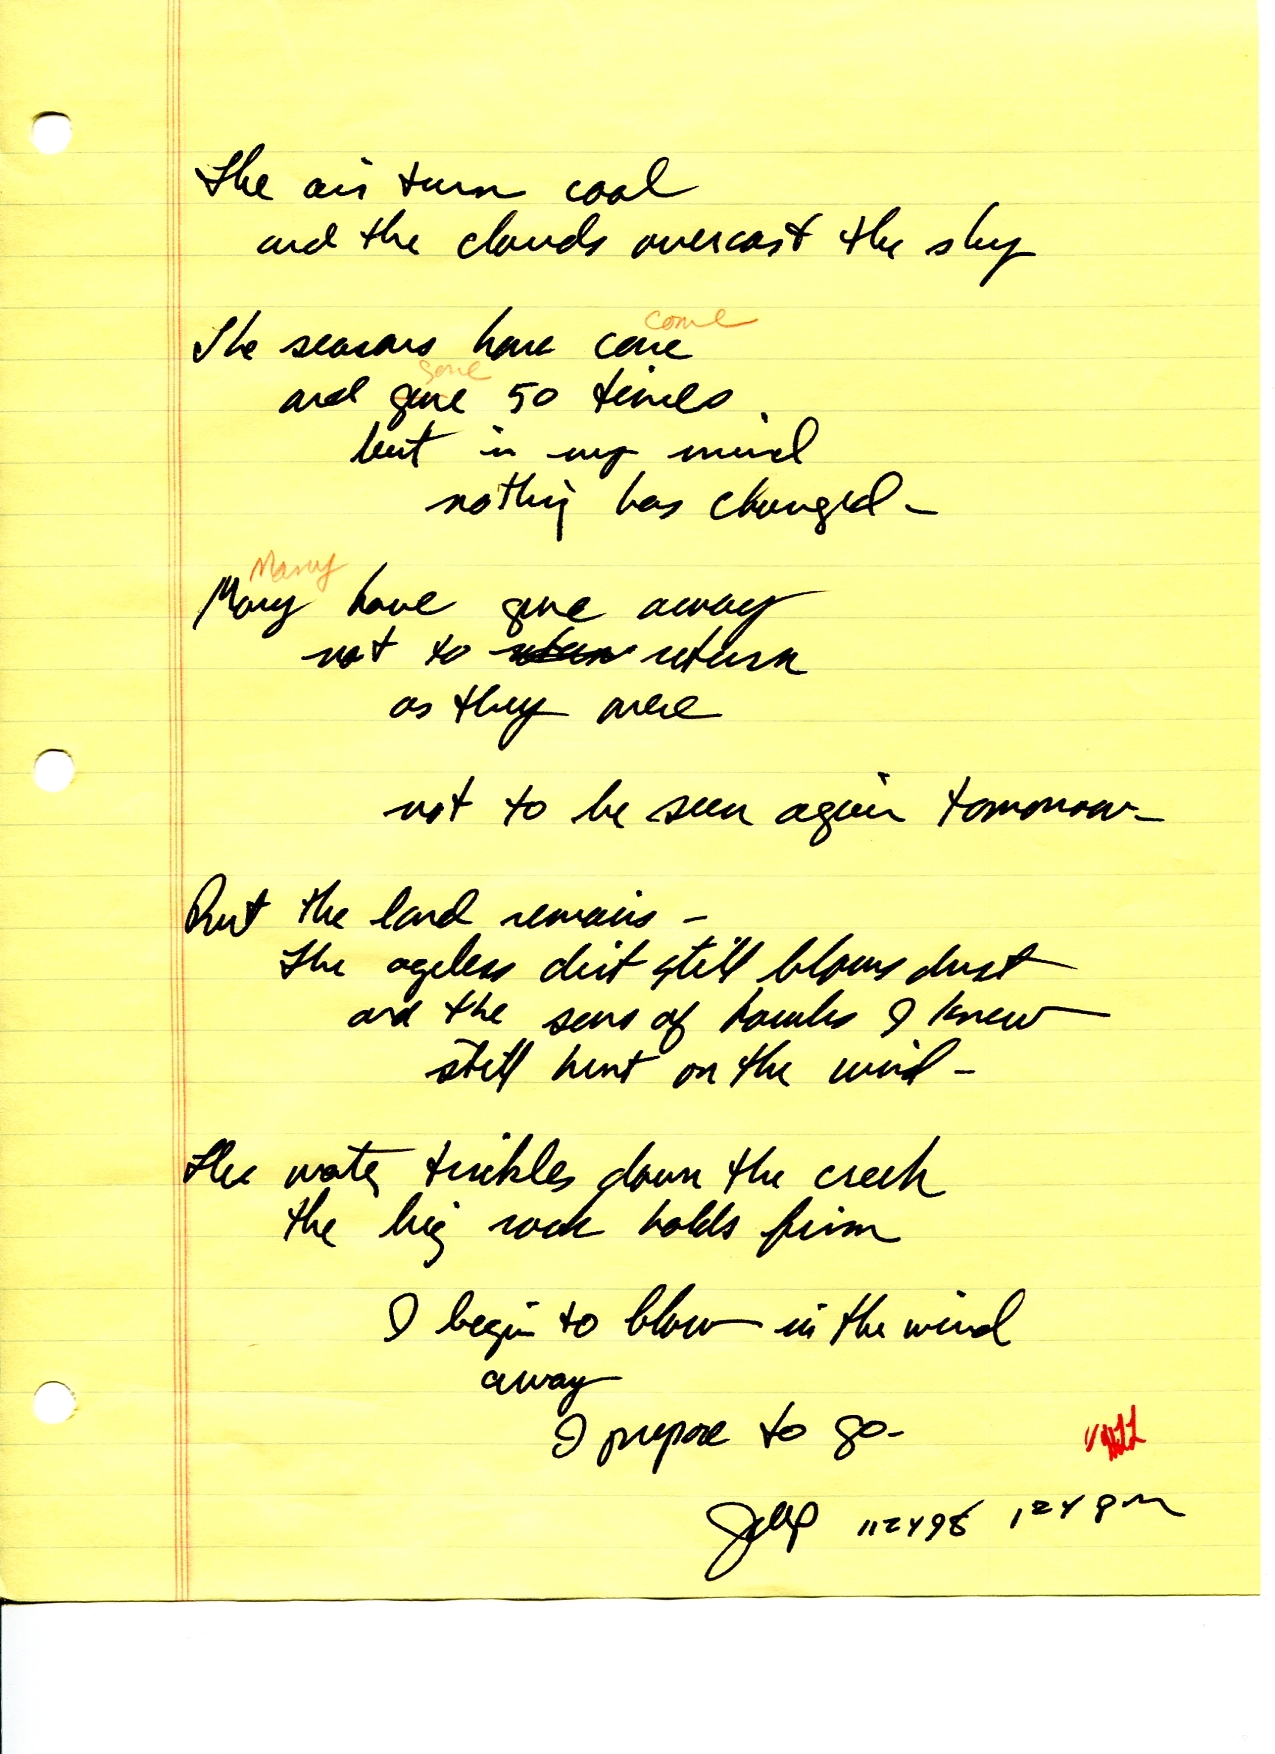 The air turn cool
and the clouds overcast the sky
come
The seasons have come
gone
and gone 50 times.
but in my mind
nothing has changed -
Many
Many have gone away
not to return
as they were
not to be seen again tomorrow -
But the land remains -
The ageless dirt still blows dust
and the sons of hawks I knew
still hunt on the wind -
The water trickles down the creek
the big rock holds firm
I begin to blow in the wind
away
I prepare to go -
112498 124 pm